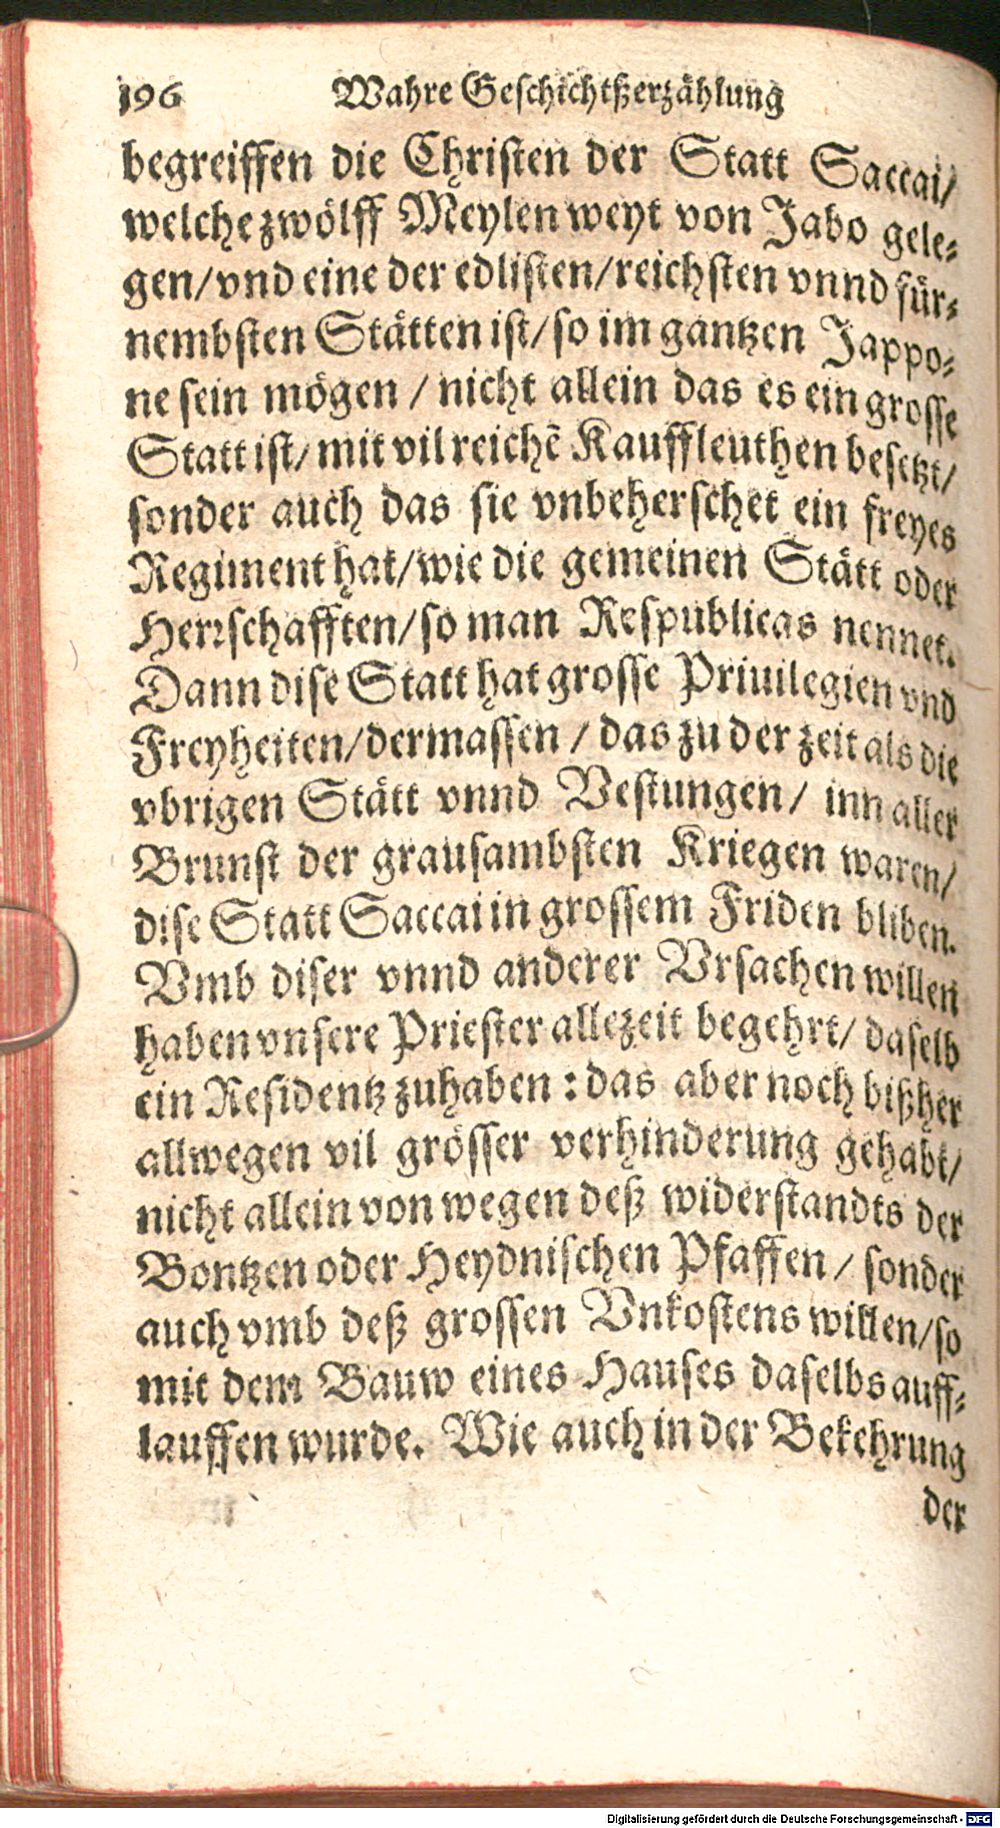 196 Wahre Geschichtßerzählung
begreiffen die Christen der Statt Saccai/
welche zwölff Meylen weyt von Jabo gele⸗
gen/ vnd eine der edlisten/ reichsten vnnd für⸗
nembsten Stätten ist/ so im gantzen Jappo⸗
ne sein mögen / nicht allein das es ein grosse
Statt ist/ mit vil reichẽ Kauffleuthen besetzt/
sonder auch das sie vnbeherschet ein freyes
Regiment hat/ wie die gemeinen Stätt oder
Herrschafften/ so man Respublicas nennet.
Dann dise Statt hat grosse Priuilegien vnd
Freyheiten/ dermassen / das zu der zeit als die
vbrigen Stätt vnnd Vestungen/ inn aller
Brunst der grausambsten Kriegen waren/
dise Statt Saccai in grossem Friden bliben.
Vmb diser vnnd anderer Vrsachen willen
haben vnsere Priester allezeit begehrt/ daselb
ein Residentz zuhaben : das aber noch bißher
allwegen vil grösser verhinderung gehabt/
nicht allein von wegen deß widerstandts der
Bontzen oder Heydnischen Pfaffen / sonder
auch vmb deß grossen Vnkostens willen/ so
mit dem Bauw eines Hauses daselbs auff⸗
lauffen wurde. Wie auch in der Bekehrung
der
Digitalisierung gefördert durch die Deutsche Forschungsgemeinschaft - DFG